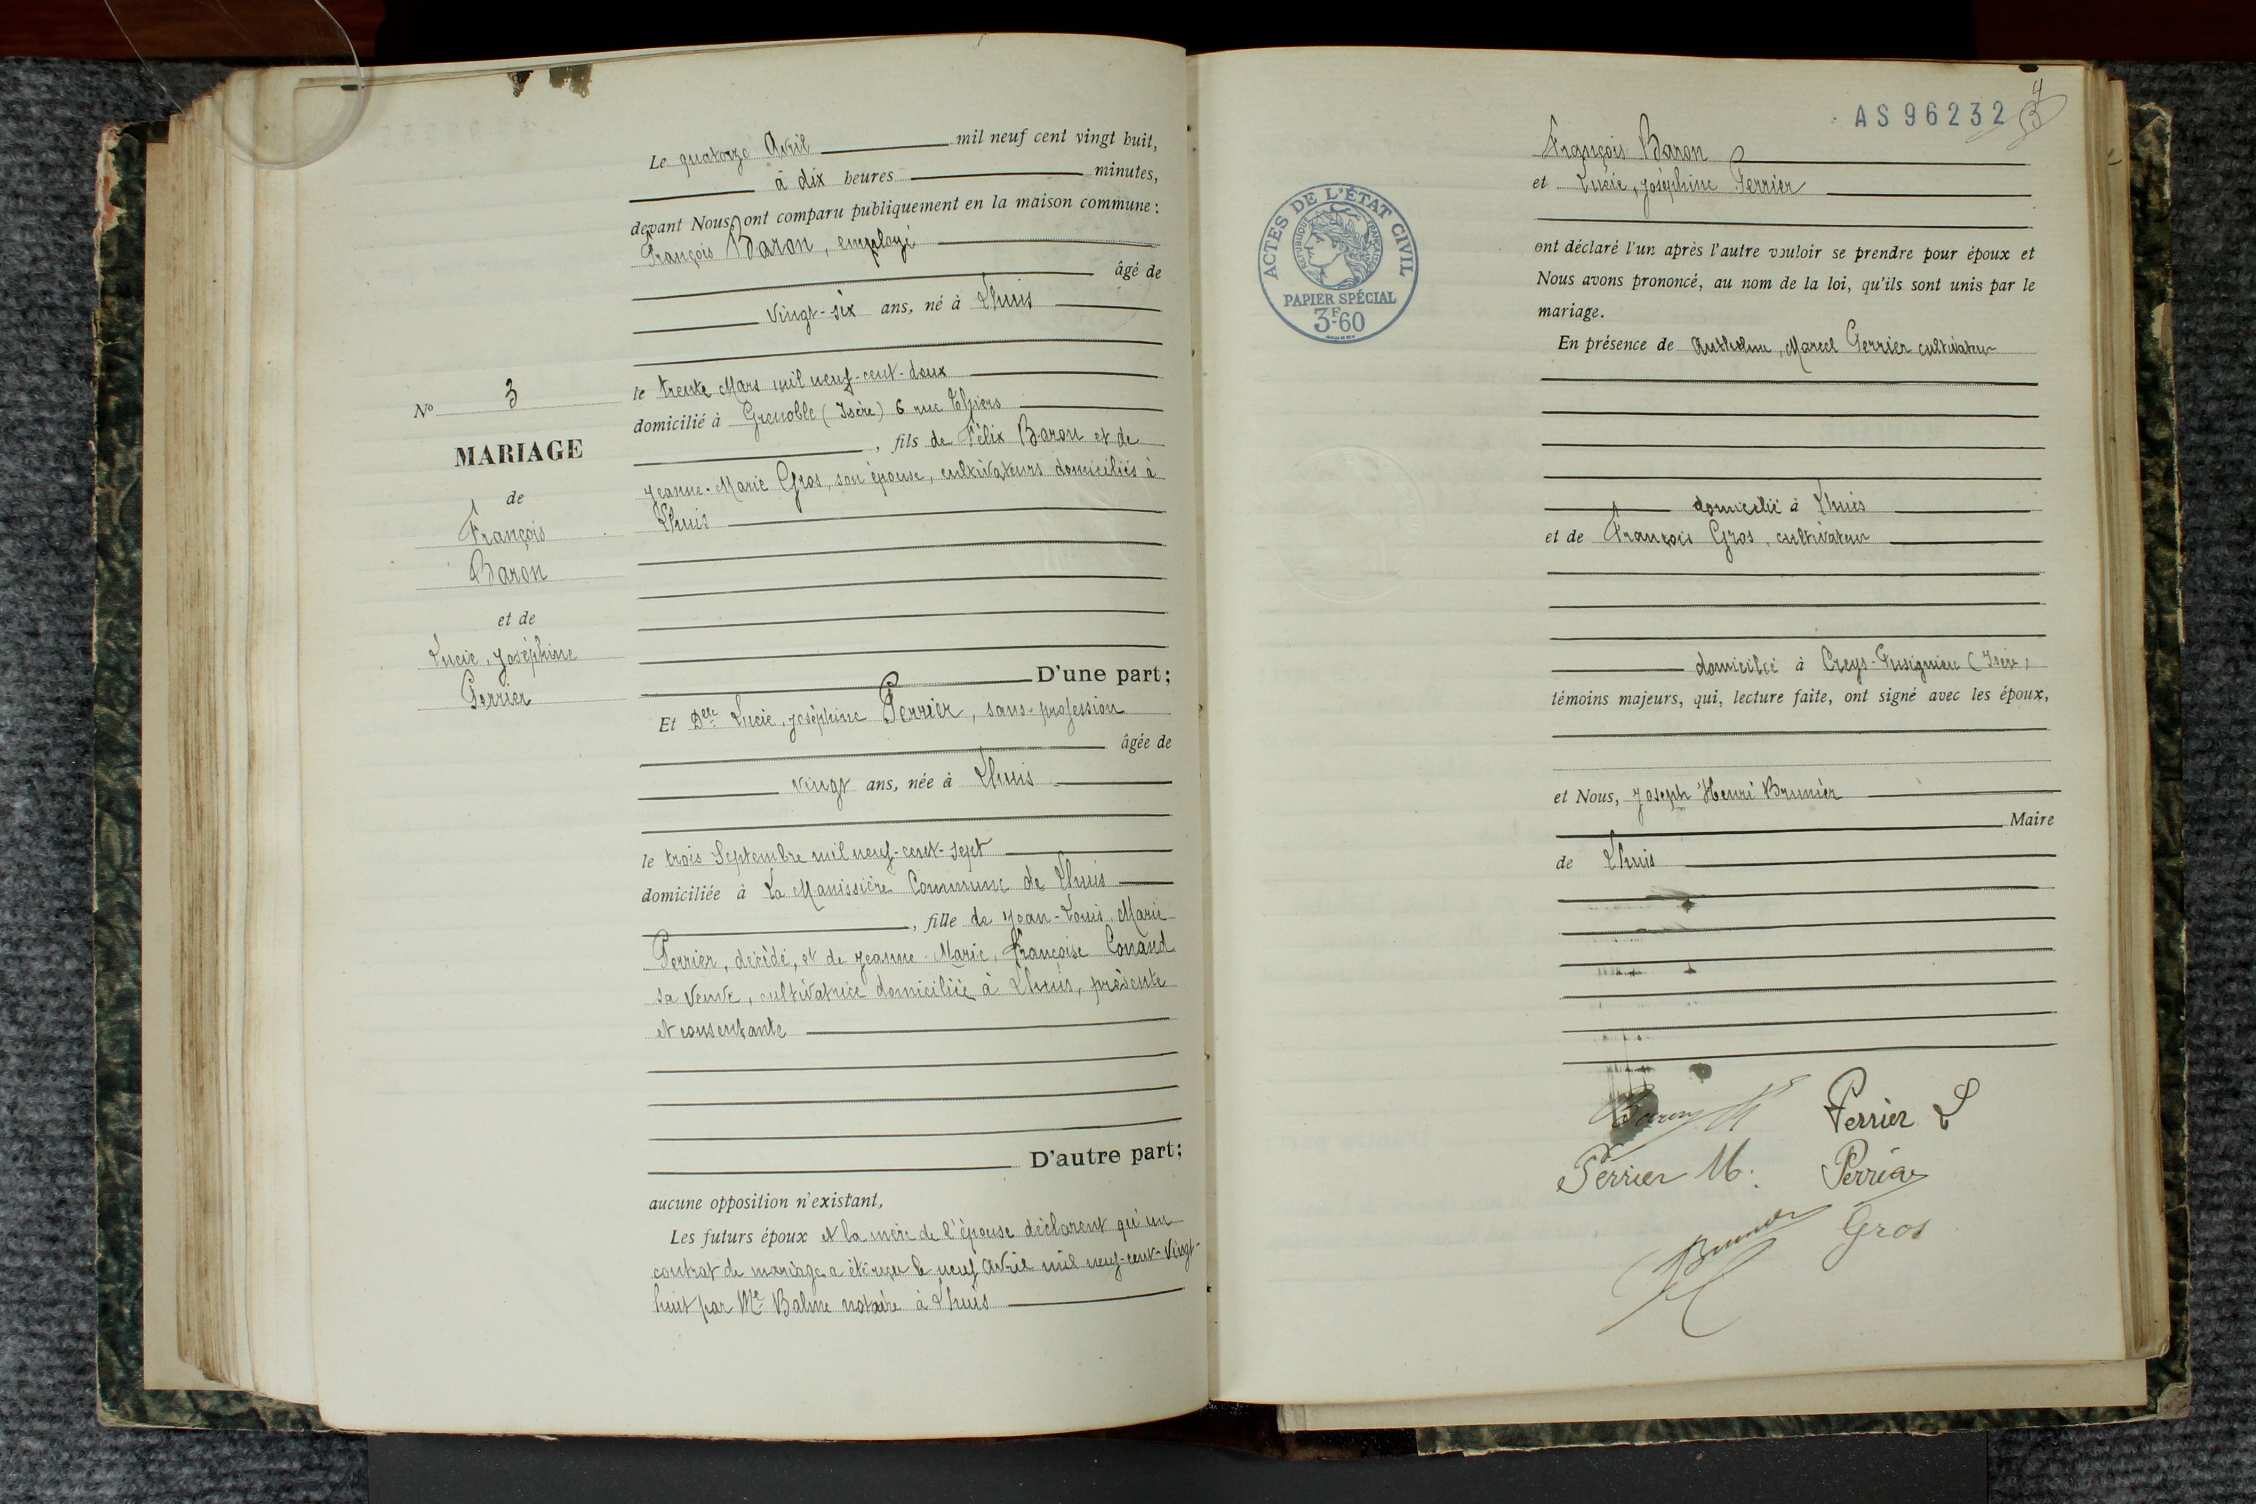 Le quatorze Avril mil neuf cent vingt huit,
à dix heures minutes,
devant Nous ont comparu publiquement en la maison commune :
François Baron, employé
âgé de
vingt-six ans, né à Lhuis
le trente Mars mil neuf-cent-deux
domicilié à Grenoble (Isère) 6 rue Thiers
, fils de Félix Baron et de
Jeanne-Marie Gros, son épouse, cultivateurs domiciliés à
Lhuis
D'une part;
Et Delle Lucie, Joséphine Perrier, sans-profession
âgée de
vingt ans, née à Lhuis
le trois Septembre mil neuf-cent-sept
domiciliée à La Manissière Commune de Lhuis
, fille de Jean-Louis, Marie
Perrier, décédé, et de Jeanne-Marie, Françoise Conand
sa veuve, cultivatrice domiciliée à Lhuis, présente
et consentante
D'autre part;
aucune opposition n'existant,
Les futurs époux et la mère de l'épouse déclarent qu'un
contrat de mariage a été reçu le neuf avril mil neuf-cent-vingt-
huit par Me Balme notaire à Lhuis
No 3
MARIAGE
de
François
Baron
et de
Lucie, Joséphine
Perrier
AS 96232
4
3
ACTES DE L'ÉTAT CIVIL
RÉPUBLIQUE FRANÇAISE
PAPIER SPÉCIAL
3F.60
François Baron
et Lucie, Joséphine Perrier
ont déclaré l'un après l'autre vouloir se prendre pour époux et
Nous avons prononcé, au nom de la loi, qu'ils sont unis par le
mariage.
En présence de Anthelme, Marcel Perrier cultivateur
domicilié à Lhuis
et de François Gros, cultivateur
domicilié à Creys-Pusignieu (Isère)
témoins majeurs, qui, lecture faite, ont signé avec les époux,
et Nous, Joseph Henri Brunier
Maire
de Lhuis
Baron F
Perrier L
Perrier M.
Perrier
Brunier
Gros